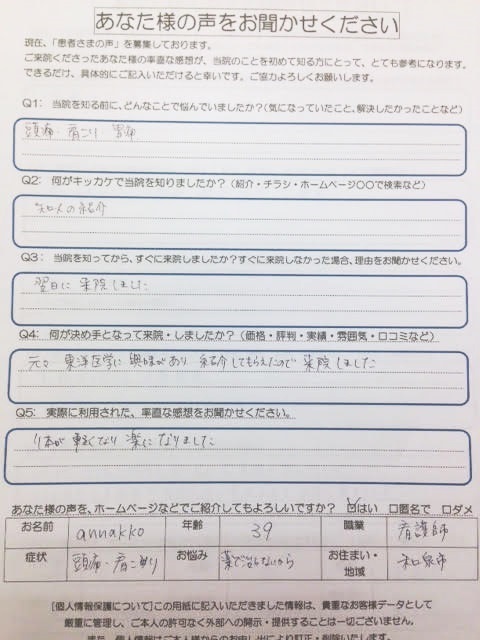 あなた様の声をお聞かせください
現在、「患者さまの声」を募集しております。
ご来院くださったあなた様の率直な感想が、当院のことを初めて知る方にとって、とても参考になります。
できるだけ、具体的にご記入いただけると幸いです。ご協力よろしくお願いします。
Q1: 当院を知る前に、どんなことで悩んでいましたか?(気になっていたこと、解決したかったことなど)
頭痛・肩こり 胃痛
Q2: 何がキッカケで当院を知りましたか?(紹介・チラシ・ホームページ〇〇で検索など)
知人の紹介
Q3: 当院を知ってから、すぐに来院しましたか?すぐに来院しなかった場合、理由をお聞かせください。
翌日に来院しました
Q4: 何が決め手となって来院・しましたか?(価格・評判・実績・雰囲気・口コミなど)
元々 東洋医学に興味があり 紹介してもらえたので 来院しました
Q5: 実際に利用された、率直な感想をお聞かせください。
体が軽くなり 楽になりました
あなた様の声を、ホームページなどでご紹介してもよろしいですか? ☑はい □匿名で □ダメ
お名前 annakko 年齢 39 職業 看護師
症状 頭痛・肩こり お悩み 薬で治らないから お住まい・地域 和泉市
[個人情報保護について]この用紙に記入いただきました情報は、貴重なお客様データとして
厳重に管理し、ご本人の許可なく外部への開示・提供することは一切ございません。
また、個人情報はご本人様からのお申し出により訂正・削除いたします。